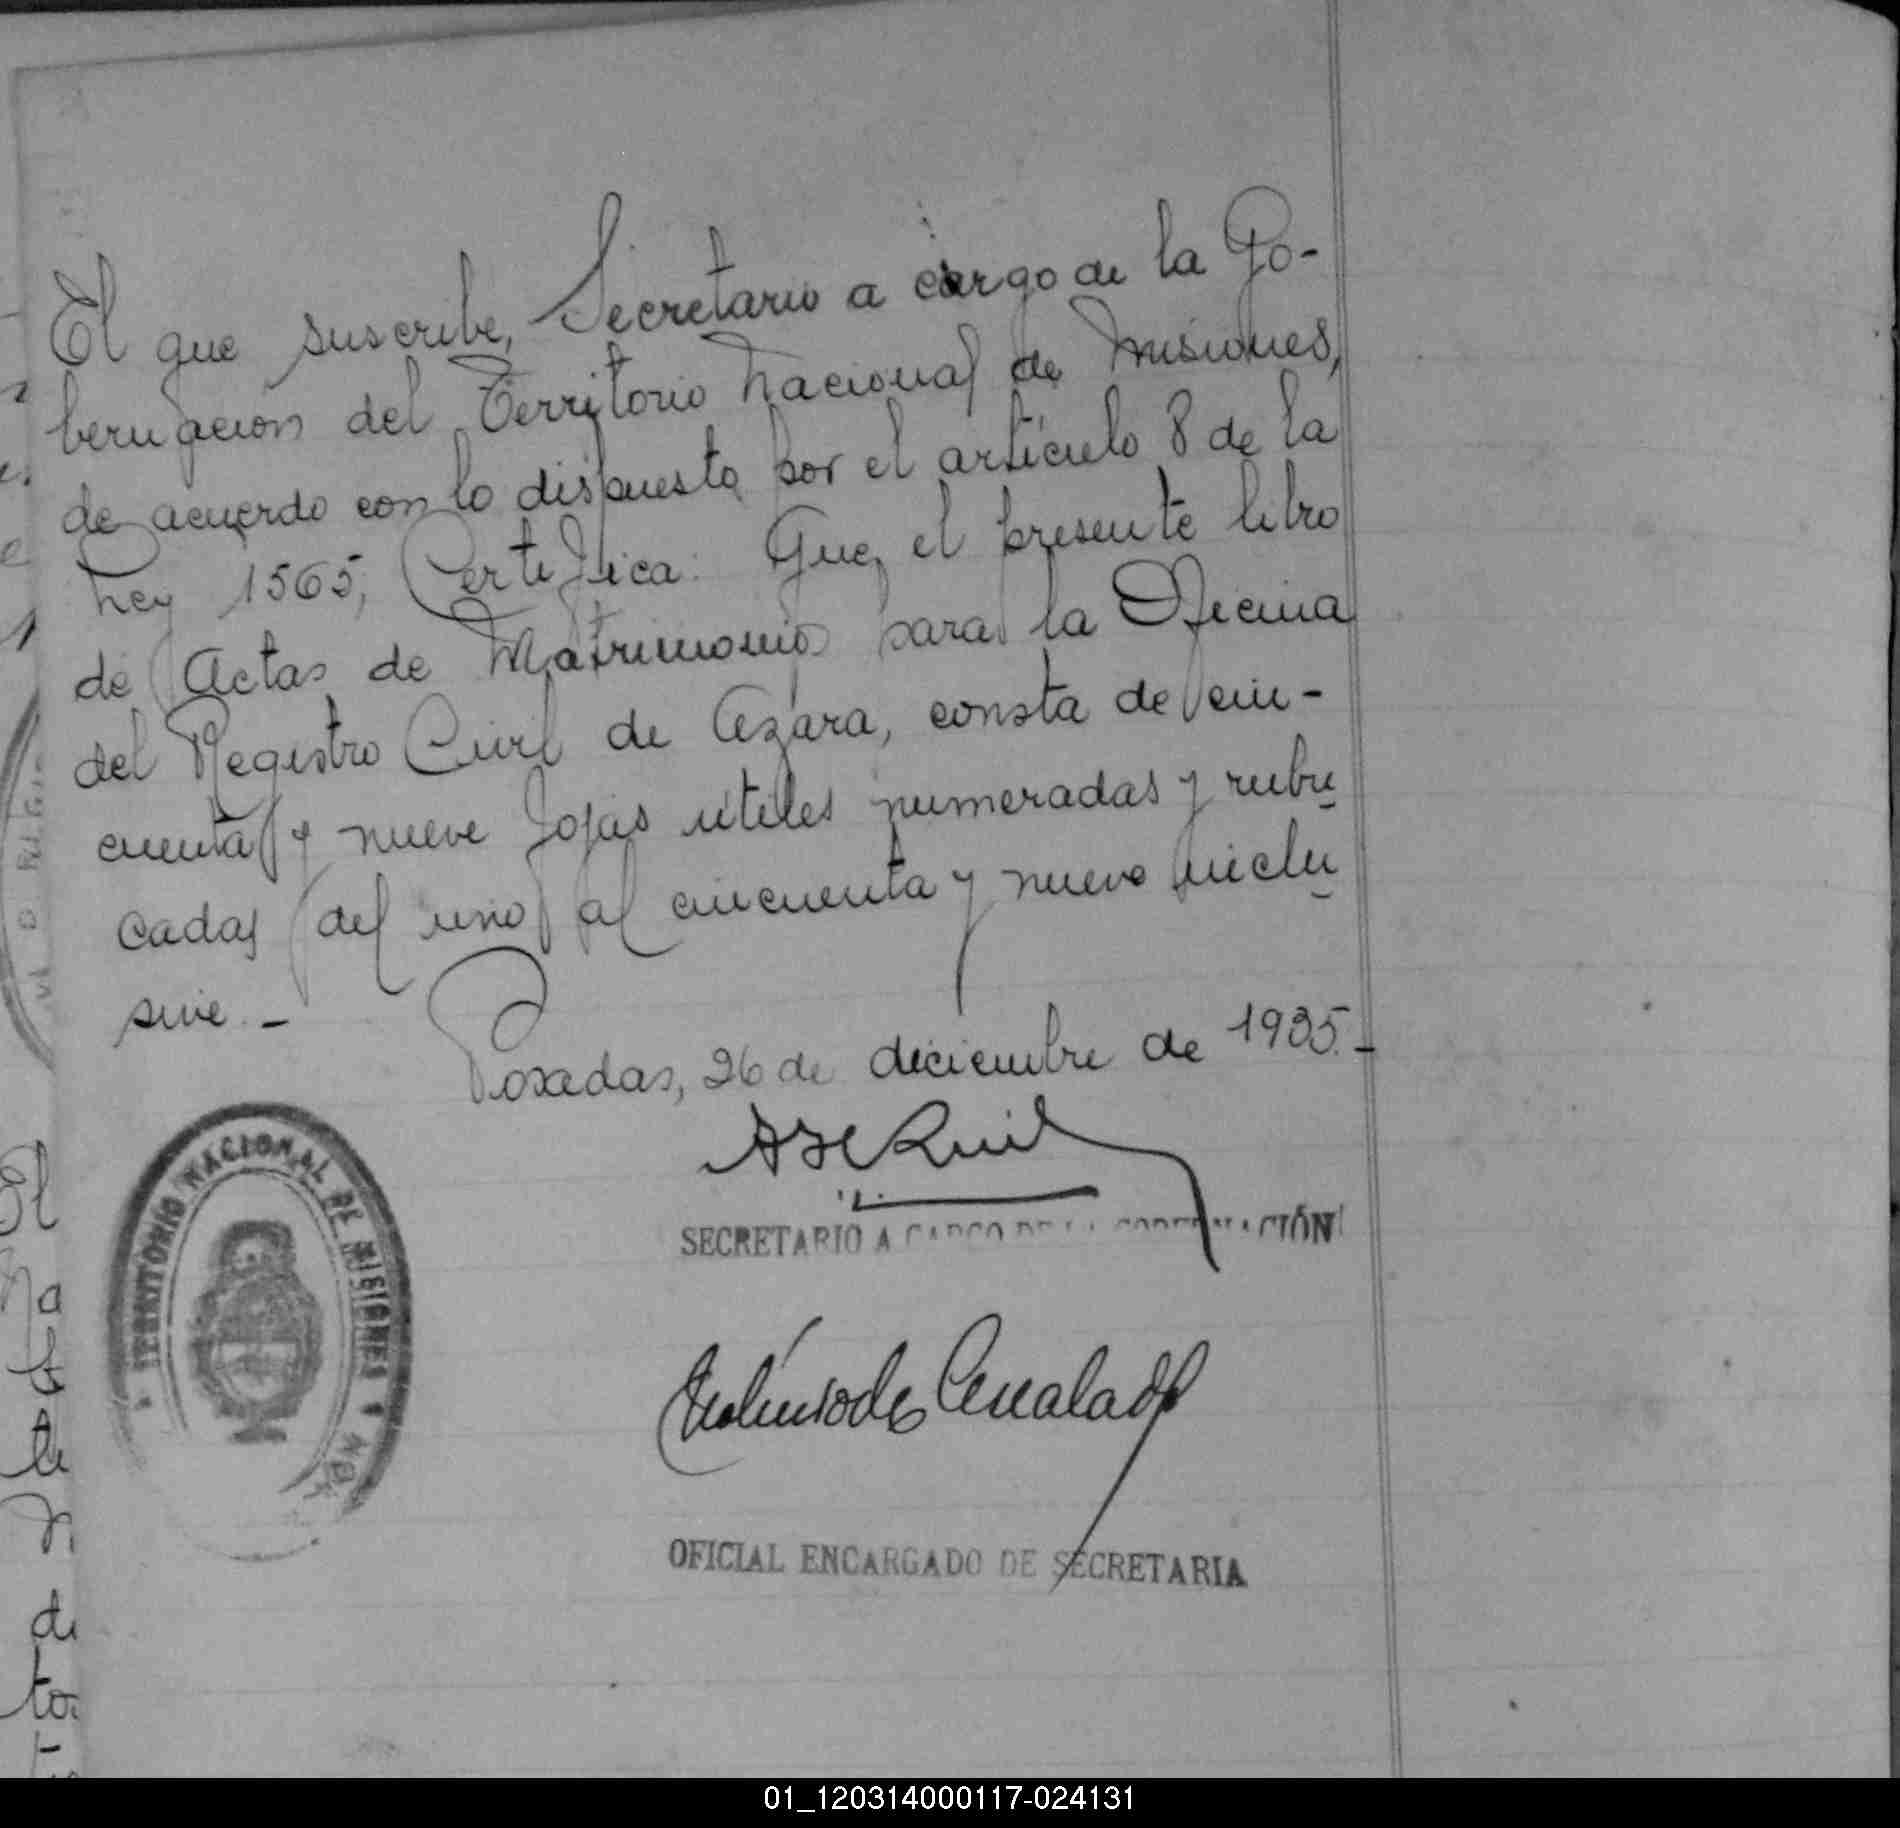 El que suscribe, Secretario a cargo de la Go-
bernacion del Territorio Nacional de Misiones,
de acuerdo con lo dispuesto por el artículo 8 de la
Ley 1565, Certifica: Que, el presente libro
de Actas de Matrimonios para la Oficina
del Registro Civil de Azara, consta de cin-
cuenta y nueve fojas útiles numeradas y rubri
cadas del uno al cincuenta y nueve inclu
sive.-
Posadas, 26 de diciembre de 1935.-
SECRETARIO A CARGO DE LA GOBERNACIÓN
TERRITORIO NACIONAL DE MISIONES
OFICIAL ENCARGADO DE SECRETARIA
01_120314000117-024131